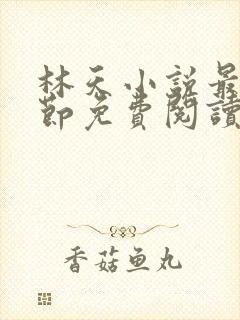 林天小说最
節免費閱讀
香菇鱼丸